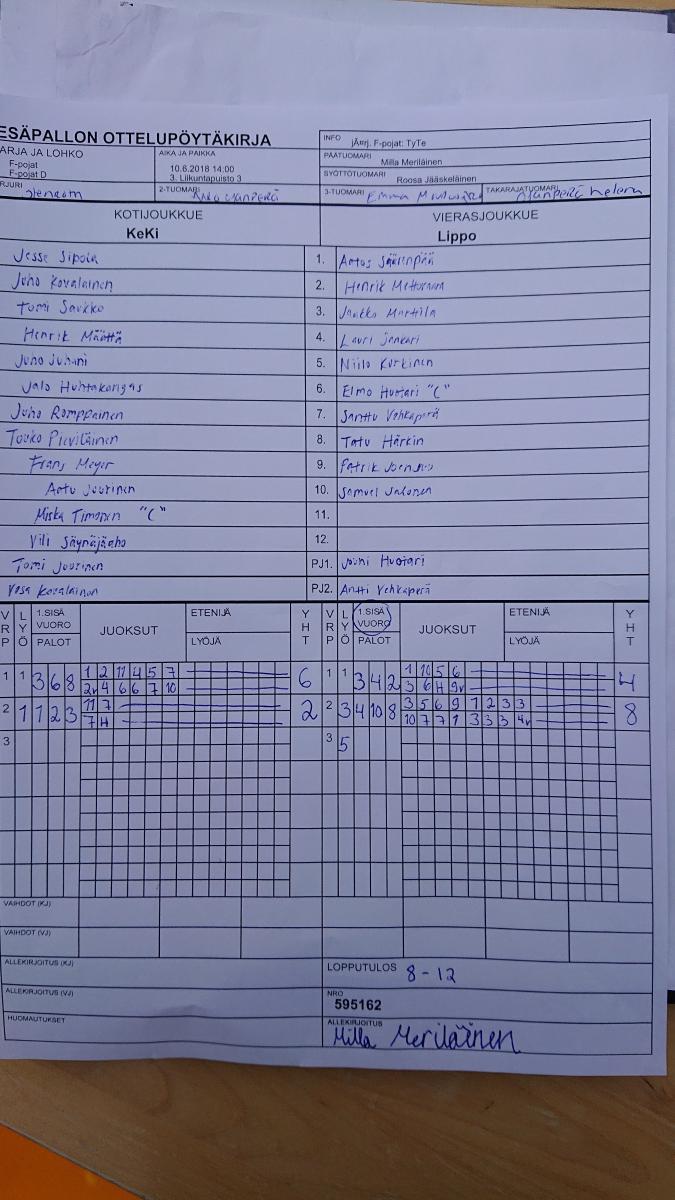 ESÄPALLON OTTELUPÖYTÄKIRJA
INFO jÄrrj. F-pojat: TyTe
ARJA JA LOHKO
F-pojat
F-pojat D
AIKA JA PAIKKA
10.6.2018 14:00
3. Liikuntapuisto 3
PÄÄTUOMARI Milla Meriläinen
SYÖTTÖTUOMARI Roosa Jääskeläinen
RJURI
2-TUOMARI
3-TUOMARI Emma
TAKARAJATUOMARI
KOTIJOUKKUE
KeKi
VIERASJOUKKUE
Lippo
Jesse Sipola 1. Aatos Säärenpää
Juho Kovalainen 2. Henrik
Tomi Saukko 3. Jaakko Marttila
Henrik Määttä 4. Lauri Junkari
Juho Juhani 5. Niilo Kurkinen
Jalo Huhtakangas 6. Elmo Huotari "C"
Juho Romppainen 7. Santtu Vehkaperä
Touko Pieviläinen 8. Tatu Härkin
Frans Meyer 9. Patrik Joensuu
Aatu Juurinen 10. Samuel Jalonen
Miska Timonen "C" 11.
Vili Säynäjäaho 12.
Tomi Juurinen PJ1. Jouni Huotari
Vesa Kovalainen PJ2. Antti Vehkaperä
VRP LYÖ 1.SISÄ VUORO PALOT JUOKSUT ETENIJÄ LYÖJÄ YHT VRP LYÖ 1.SISÄ VUORO PALOT JUOKSUT ETENIJÄ LYÖJÄ YHT
1 1 3 6 8 1 2 11 4 5 7 6 1 1 3 4 2 1 10 5 6 4
2v 4 6 6 7 10 3 6 H 9v
2 1 1 2 3 11 7 2 2 3 4 10 8 3 5 6 9 1 2 3 3 8
7 H 10 7 7 1 3 3 3 4v
3 3 5
VAIHDOT (KJ)
VAIHDOT (VJ)
ALLEKIRJOITUS (KJ)
LOPPUTULOS 8-12
ALLEKIRJOITUS (VJ)
NRO
595162
HUOMAUTUKSET
ALLEKIRJOITUS
Milla Meriläinen